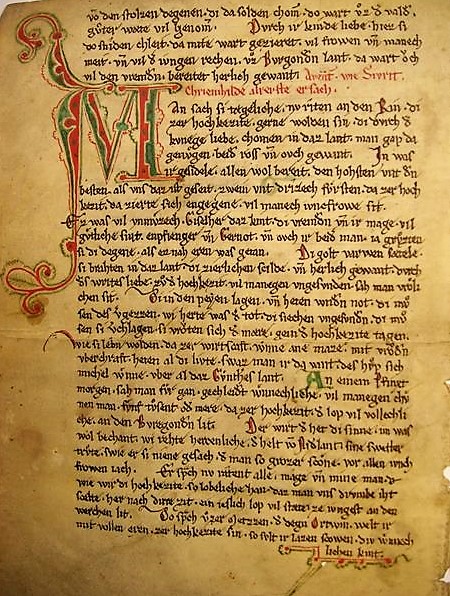 võ den stolzen degenen. di da solden chom. do wart vz d vald.
gůter wete vil genom. Durch ir kinde liebe. hiez si
do sniden chleit. da mite wart gezieret. vil frowen vñ manech
meit. vñ vil d iungen rechen. vz Burgondn lant. da wart och
vil den vremdn. bereitet herlich gewant. Avent. wie Sivrit.
Chriemhilde alrerste ersach.
Man sach si tegeliche. nv riten an den Rin. di
zer hochkezite. gerne wolden sin. di durch d
kunege liebe. chomen in daz lant. man gap da
genvgen. beid ross vñ ovch gewant. In was
ir gesidele. allen wol bereit. den hohsten vñ dn
besten. als vns daz ist geseit. zwein vnt drizech fursten. da zer hoch
kezit. da zierte sich engegene. vil manech winefrowe sit.
Ez was vil vnmvzech. Giselher daz kint. di vremdn vñ ir mage. vil
gůtliche sint. enpfienger vñ Gernot. vñ ovch ir beid man. ia grůzten
si di degene. als ez nah eren was getan. Di golt varwen setele.
si brahten in daz lant. di zierlichen scilde. vñ herlich gewant. durch
des wirtes liebe. zv d hochkezit. vil manegen vngesunden. sah man vrol
chen sit. Di in den peten lagen. vñ heten wndn not. di mů
sen des vergezzen. wi herte was d tot. di siechen vngesundn. di mů
sen si verchlagen. si vroten sich d mere. gein d hochkezite tagen.
wie si lebn wolden. da zer wirtscaft. wnne ane maze. mit vrovdn
vberchraft. heten al di livte. swaz man ir da vant. des hup sich
michel wnne. vber al daz Gunthes lant. An einem Pfinxt
morgen. sah man fur gan. gechleidet wnnechliche. vil manegen chv
nen man. fvnf tvsent od mere. da zer hochkezit. d lop vil vollechli
che. an den Bvregondn lit. Der wirt d het di sinne. im was
wol bechant. wi rehte herzenliche. d helt vō Nidlant. sine swester
trvte. swie er si niene gesach. d man so grozer scone. vor allen ivnch
frowen iach. Er sprach nv ratent alle. mage vñ mine man.
wie wir di hochkezit. so lobeliche han. daz man vns drvmbe iht
scelte. her nach dirre zit. ein ieslich lop vil stete ze iungest an den
werchen lit. Do sprach vzer Metzzen. d degn Ortwin. welt ir
mit vollen eren. zer hochkezite sin. so svlt ir lazen scowen. div wnnech
lichen kint.